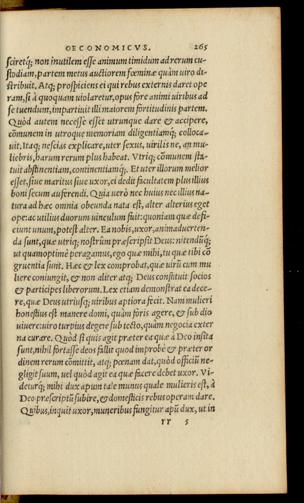 OECONOMICVS. 265
sciretq́; non inutilem esse animum timidum ad rerum cu-
stodiam, partem metus auctiorem fœminæ quàm uiro di-
stribuit. Atq; prospiciens ei qui rebus externis daret ope
ram, si à quoquam uiolaretur, opus fore animi uiribus ad
se tuendum, impartiuit illi maiorem fortitudinis partem.
Quòd autem necesse esset utrunque dare & accipere,
cōmunem in utroque memoriam diligentiamq́; colloca-
uit. Itaq; nescias explicare, uter sexus, uirilis ne, an mu-
liebris, harum rerum plus habeat. Vtriq; cōmunem sta-
tuit abstinentiam, continentiamq́;. Et uter illorum melior
esset, siue maritus siue uxor, ei dedit facultatem plus illius
boni secum auferendi. Quia uerò nec huius nec illius na-
tura ad hæc omnia obeunda nata est, alter alterius eget
ope: ac utilius duorum uinculum fuit: quoniam quæ defi-
ciunt unum, potest alter. Ea nobis, uxor, animaduerten-
da sunt, quæ utriq; nostrûm præscripsit Deus: nitendūq́;
ut quamoptimè peragamus, ego quæ mihi, tu quæ tibi cō
gruentia sunt. Hæc & lex comprobat, quæ uirū cum mu
liere coniungit, & non aliter atq; Deus constituit socios
& participes liberorum. Lex etiam demonstrat ea dece-
re, quæ Deus utriusq; uiribus aptiora fecit. Nam mulieri
honestius est manere domi, quàm foris agere, & sub dio
uiuere: uiro turpius degere sub tecto, quàm negocia exter
na curare. Quòd si quis agit præter ea quæ à Deo insita
sunt, nihil fortasse deos fallit quod improbè & præter or
dinem rerum cōmittit, atq; pœnam dat, quòd officiū ne-
gligit suum, uel quòd agit ea quæ facere debet uxor. Vi-
deturq́; mihi dux apum tale munus quale mulieris est, à
Deo præscriptū subire, & domesticis rebus operam dare.
Quibus, inquit uxor, muneribus fungitur apū dux, ut in
rr 5